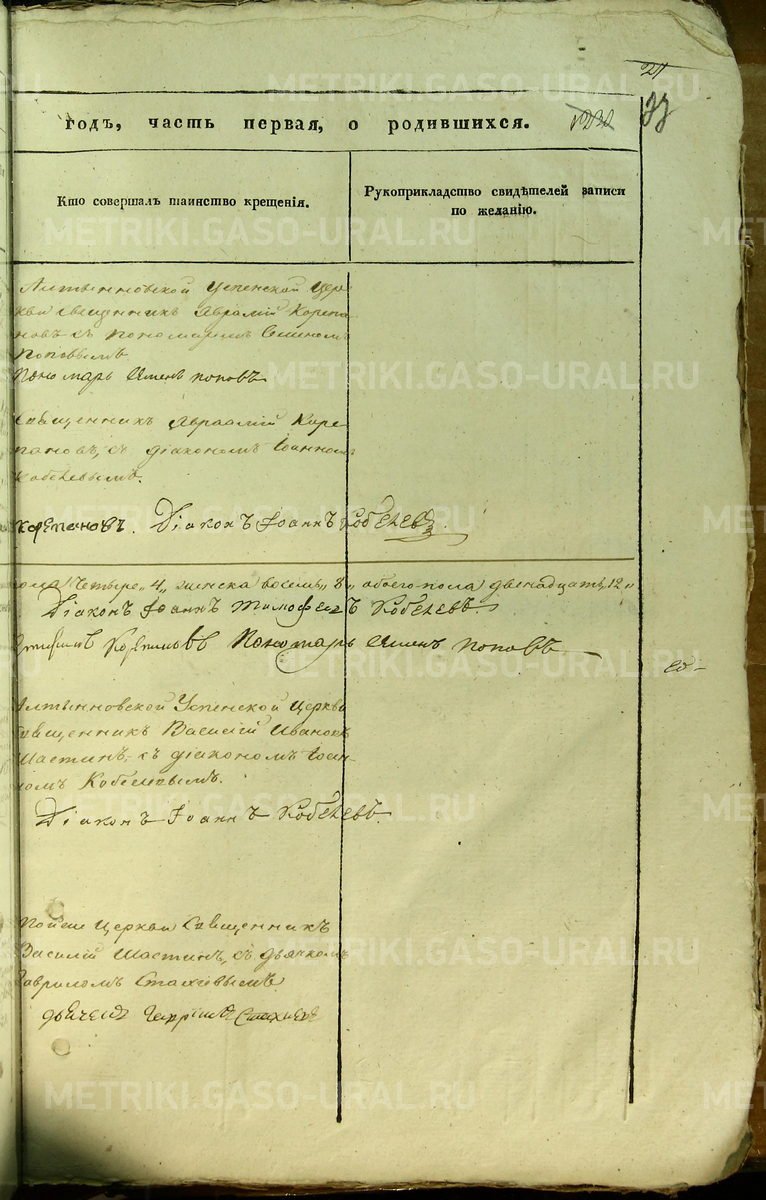 21
годъ, часть первая, о родившихся.
Кто совершалъ таинство крещенія.
Рукоприкладство свидѣтелей записи
по желанію.
Алтынновской Успенской Цер-
кви священникъ Авраамій Корепа-
новъ съ пономаремъ Симеономъ
Поповымъ
Пономарь Симеонъ поповъ
Священникъ Авраамій Коре-
пановъ, съ діакономъ Іоанномъ
Кобелевымъ.
Корепановъ. Діаконъ Іоаннъ Кобелевъ.
пола четыре „4„ женска восемь „8„ обоего пола двенадцать „12„
Діаконъ Іоаннъ Тимофеевъ Кобелевъ.
Корепановъ Пономарь Симеонъ поповъ
Алтынновской Успенской Церкви
священникъ Василій Ивановъ
Шастинъ, съ діакономъ Іоан-
номъ Кобелевымъ.
Діаконъ Іоаннъ Кобелевъ.
Той же Церкви Священникъ
Василій Шастинъ, съ дьячкомъ
Гавриломъ Стахіевымъ
дьячекъ Гавріилъ Стахіевъ
METRIKI.GASO-URAL.RU